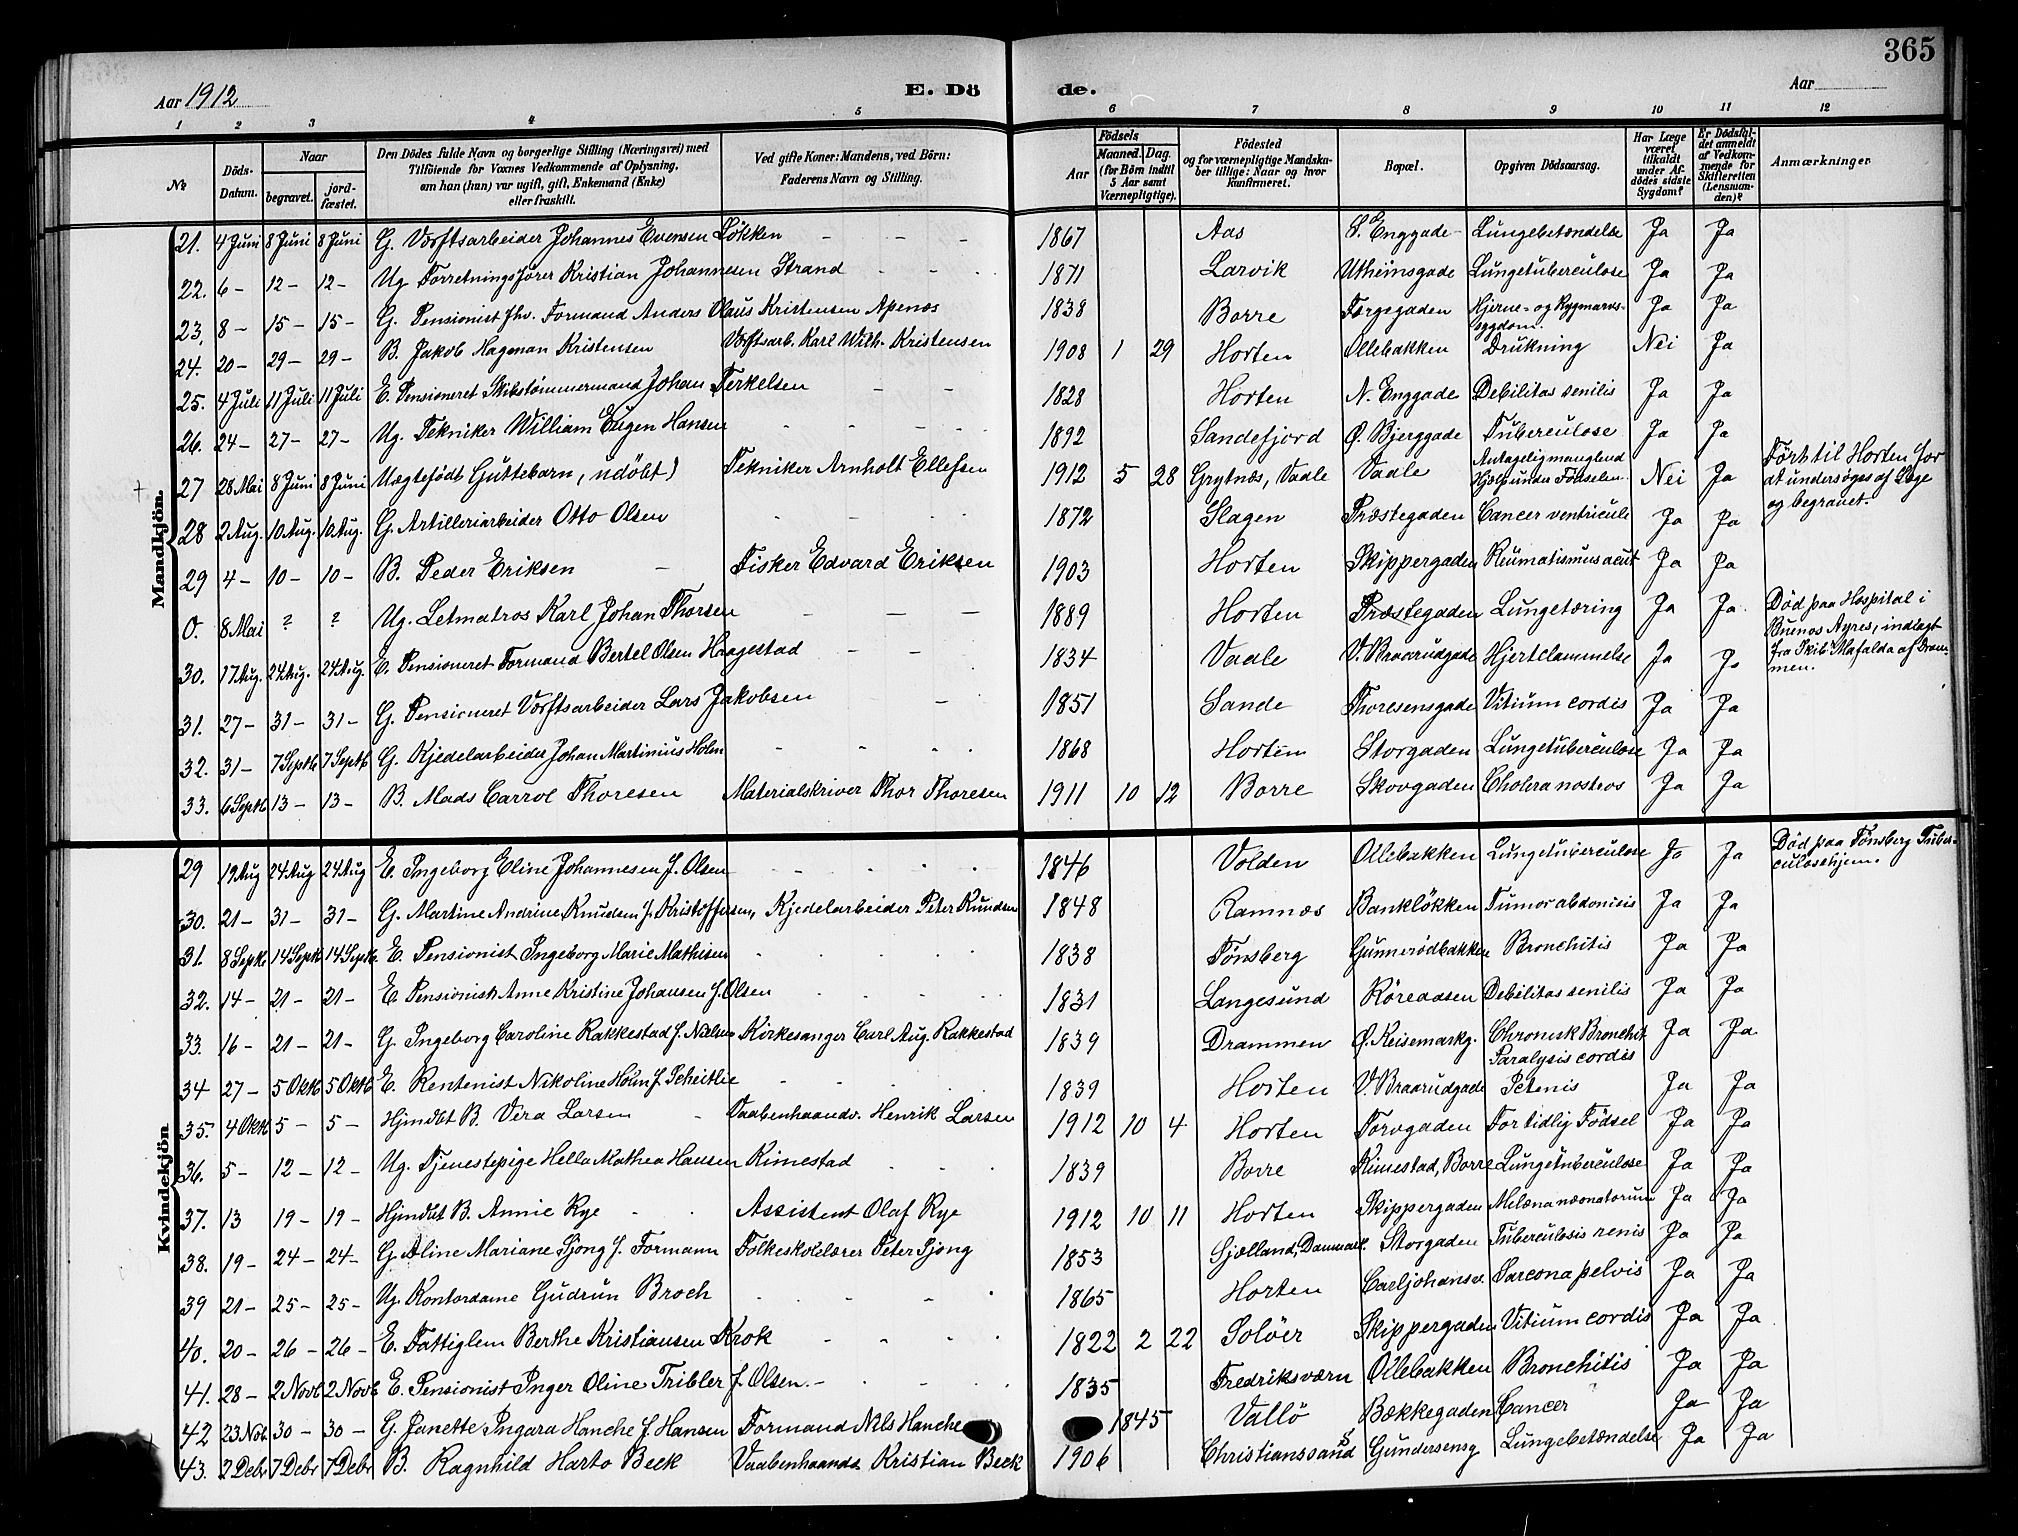 365
Aar 1912
E. Dö
de.
Aar
1 2 3 4 5 6 7 8 9 10 11 12
№
Döds-Datum.
Naar
begravet.
jord-fæstet.
Den Dödes fulde Navn og borgerlige Stilling (Næringsvei) med
Tilföiende for Voxnes Vedkommende af Oplysning,
om han (hun) var ugift, gift, Enkemand (Enke)
eller fraskilt.
Ved gifte Koner: Mandens, ved Börn:
Faderens Navn og Stilling.
Födsels
Aar
Maaned. Dag.
(for Börn indtil
5 Aar samt
Værnepligtige).
Födested
og for værnepligtige Mandska-
ber tillige: Naar og hvor
konfirmeret.
Bopæl.
Opgiven Dödsaarsag.
Har Læge
været
tilkaldt
under Af-
dödes sidste
Sygdom?
Er Dödsfal-
det anmeldt
af Vedkom-
mende for
Skifteretten
(Lensman-
den)?
Anmærkninger.
Mandkjön.
21. 4 Juni 8 Juni 8 Juni G. Værftsarbeider Johannes Evensen Løkken 1867 Aas S. Enggade Lungebetændelse Ja Ja
22. 6 – 12 – 12 – Ug. Forretningsfører Kristian Johannesen Strand 1871 Larvik Utheimsgade Lungetuberculose Ja Ja
23, 8 – 15 – 15 – G. Pensionist fhv. Formand Anders Olaus Kristensen Apenæs 1838 Borre Torgegaden Hjerne- og Rygmarvs-sygdom. Ja Ja
24. 20 – 29 – 29 – B. Jakob Hagman Kristensen Værftsarb. Karl Wilh. Kristensen 1908 1 29 Horten Ollebakken Drukning Nei Ja
25. 4 Juli 11 Juli 11 Juli E. Pensioneret Skibstømmermand Johan Terkelsen 1828 Horten N. Enggade Debilitas senilis Ja Ja
26. 24 – 27 – 27 – Ug. Tekniker William Eugen Hansen 1892 Sandefjord Ø. Bjerggade Tuberculose Ja Ja
27 28 Mai 8 Juni 8 Juni Uægtefødt Guttebarn, udøbt) Tekniker Arnholt Ellefsen 1912 5 28 Grytnæs, Vaale Vaale Antagelig manglend Hjælp under Fødselen. Nei Ja Ført til Horten for at undersøges af Læge og begravet.
28 2 Aug. 10 Aug. 10 Aug. G. Artilleriarbeider Otto Olsen 1872 Slagen Præstegaden Cancer ventricule Ja Ja
29 4 – 10 – 10 – B. Peder Eriksen Fisker Edvard Eriksen 1903 Horten Skippergaden Reumatismus acut Ja Ja
0. 8 Mai ? ? Ug. Letmatros Karl Johan Thorsen 1889 Horten Præstegaden Lungetæring Ja Ja. Død paa Hospital i Buenos Ayres, indlagt fra Skib Mafalda af Drammen.
30. 17 Aug. 24 Aug. 24 Aug. E. Pensioneret Formand Bertel Olsen Haagestad 1834 Vaale V. Braarudgade Hjertelammelse Ja Ja
31. 27 – 31 – 31 – G. Pensioneret Værftsarbeider Lars Jakobsen 1851 Sande Thoresensgade Vitium cordis Ja Ja
32. 31 – 7 Septb 7 Septb G. Kjedelarbeider Johan Martinius Holm 1868 Horten Storgaden Lungetuberculose Ja Ja
33. 6 Septb 13 – 13 – B. Mads Carrol Thoresen Materialskriver Thor Thoresen 1911 10 12 Borre Skovgaden Cholera nostros Ja Ja
Kvindekjön
29 19 Aug 24 Aug 24 Aug E. Ingeborg Eline Johannesen f. Olsen 1846 Volden Ollebakken Lungetuberculose Ja Ja Død paa Tønsberg Tuberculosehjem.
30. 21 – 31 – 31 – G. Martine Andrine Knudsen f. Kristoffersen, Kjedelarbeider Peter Knudsen 1848 Ramnæs Bankløkken Tumor abdonisis Ja Ja
31. 8 Septb 14 Septb 14 Septb. E. Pensionist Ingeborg Marie Mathisen 1838 Tønsberg Gunnerødbakken Bronchitis Ja Ja
32. 14 – 21 – 21 – E. Pensionist Anne Kristine Johansen f. Olsen 1831 Langesund Røreaasen Debilitas senilis Ja Ja
33. 16 – 21 – 21 – G. Ingeborg Caroline Rakkestad f. Nielsen Kirkesanger Carl Aug. Rakkestad 1839 Drammen Ø. Keisemarkg. Chronisk Bronchit Paralysis cordis Ja Ja
34 27 – 5 Oktb 5 Oktb E. Rentenist Nikoline Holm f. Scheitlie 1839 Horten V. Braarudgade Ja Ja
35. 4 Oktb 5 – 5 – Hjmdbt B. Vera Larsen Vaabenhaandv. Henrik Larsen 1912 10 4 Horten Torvgaden For tidlig Fødsel Ja Ja
36. 5 – 12 – 12 – Ug. Tjenestepige Hella Mathea Hansen Kimestad 1839 Borre Kimestad, Borre Lungetuberculose Ja Ja
37. 13 19 – 19 – Hjmdbt B. Annie Rye Assistent Olaf Rye 1912 10 11 Horten Skippergaden Melæna næonatorum Ja Ja
38. 19 – 24 – 24 – G. Aline Mariane Sjong f. Formann Folkeskolelærer Peter Sjong 1853 Sjælland, Danmark. Storgaden Tuberculosis renis Ja Ja
39 21 – 25 – 25 – Ug. Kontordame Gudrun Broch 1865 Horten Carljohansv. Sarcona pelvis Ja Ja
40. 20 – 26 – 26 – E. Fattiglem Berthe Kristiansen Krok 1822 2 22 Soløer Skippergaden Vitium cordis Ja Ja
41. 28 – 2 Novb 2 Novb E. Pensionist Inger Oline Tribler f. Olsen 1835 Fredriksværn Ollebakken Bronchitis Ja Ja
42 23 Nov. 30 – 30 – G. Janette Ingara Hanche f. Hansen Formand Nils Hanche 1845 Vallö Bækkegaden Cancer Ja Ja
43. 2 Debr 7 Debr 7 Debr B. Ragnhild Harto Beck Vaabenhaandv Kristian Beck 1906 Christianssand S Gundersensg Lungebetændelse Ja Ja